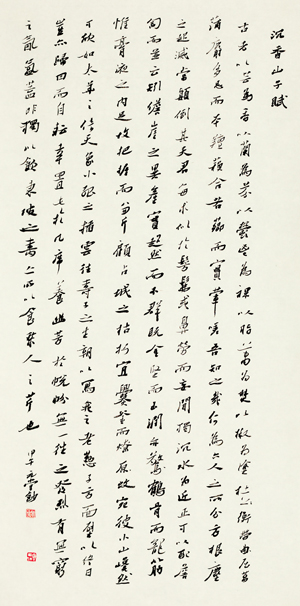 沉香山子賦
古者以芸為香以蘭為芬以鬱鬯為祼以脂蕭為焚以椒為塗杜衡帶屈菖
蒲薦文麝多忌而本羶蘇合若薌而實葷嗟吾知之幾何為六入之所分方根塵
之起滅常顛倒其天君每求似於髣髴或鼻勞而妄聞獨沉水為近正可以配薝
蔔而並云矧儋崖之異產實超然而不群既金堅而玉潤亦鶴骨而龍筋
惟膏液之內足故把握而兼斤顧占城之枯朽宜爨釜而燎蚊宛彼小山巉然
可欣如太華之倚天象小孤之插雲往壽子之生朝以寫我之老懃子方面壁以終日
豈亦歸田而自耘幸置此於几席養幽芳於帨帉無一往之發烈有無窮
之氤氳蓋非獨以飲東坡之壽亦所以食黎人之芹也
甲午